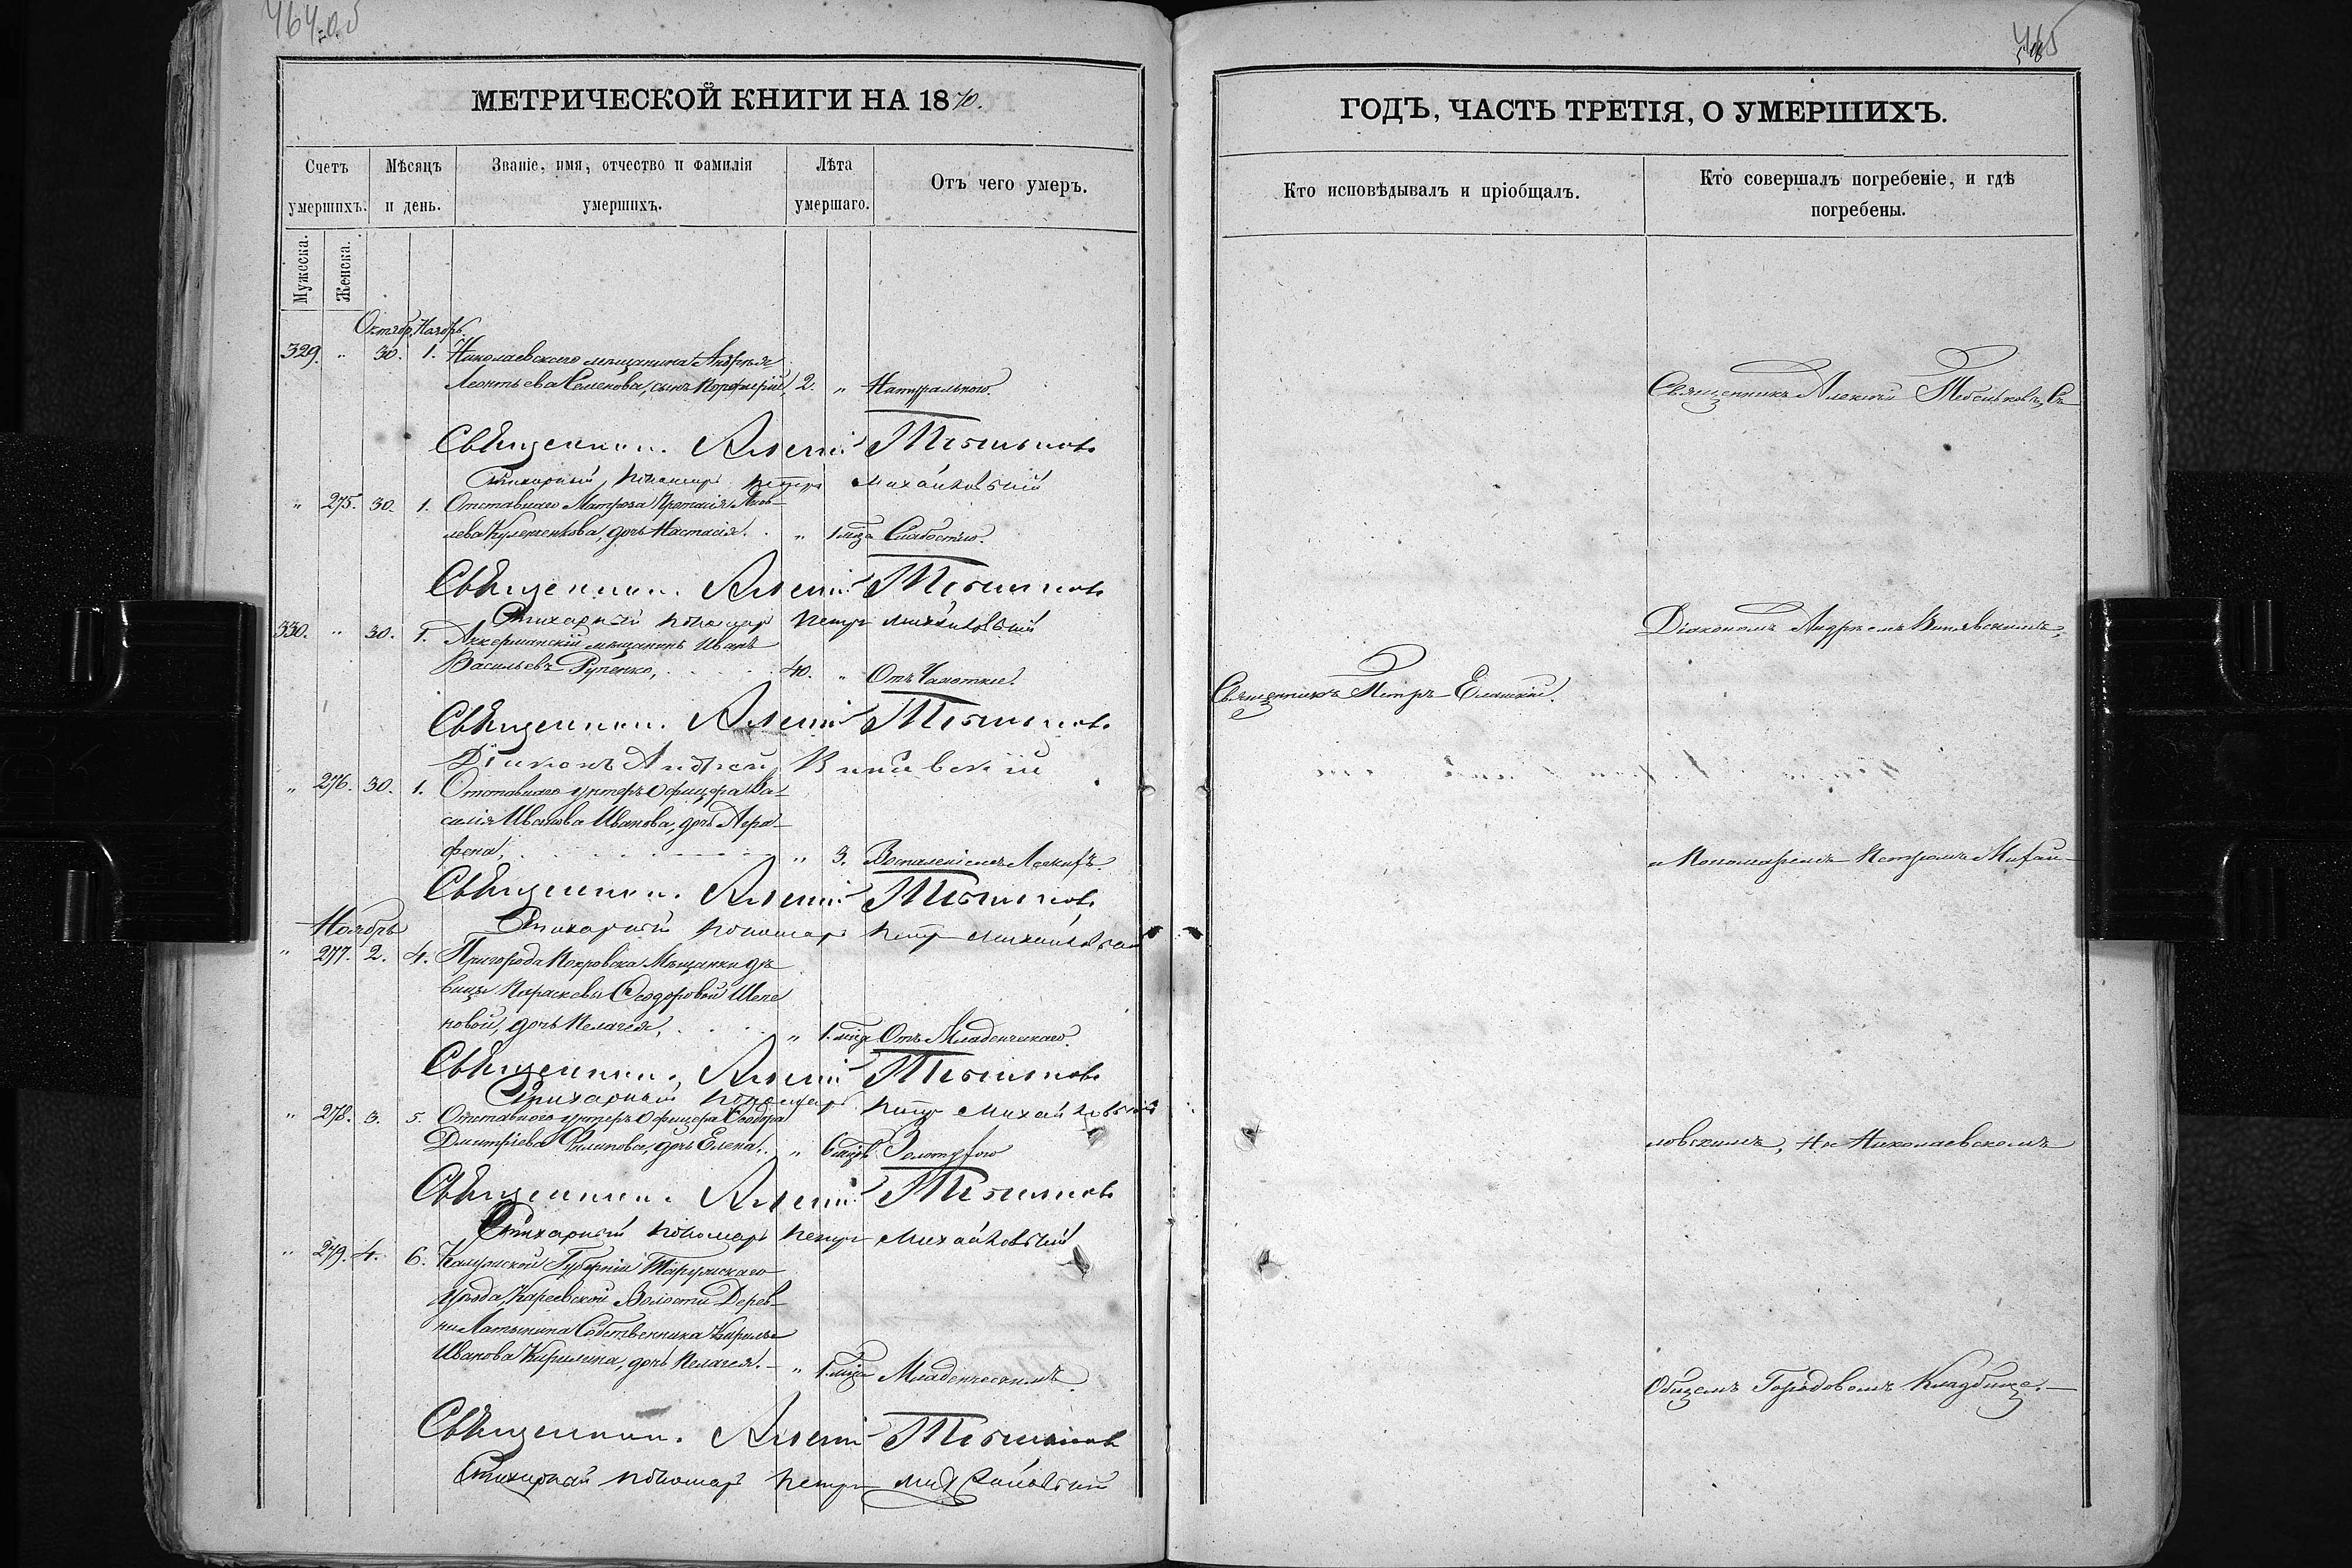 464 об
МЕТРИЧЕСКОЙ КНИГИ НА 1870.
Счетъ умершихъ.
Мѣсяцъ и день.
Званіе, имя, отчество и фамилія умершихъ.
Лѣта умершаго.
Отъ чего умеръ.
Мужеска.
Женска.
Октябр. Ноябрь.
329. " 30. 1. Николаевскаго мѣщанина Андрея
Леонтьева Семенова, сынъ Порфирій, 2. " Натурального.
Священникъ Алексій Тебеньковъ
Стихарный пономарь Петръ Михайловскій
" 275. 30. 1. Отставнаго Матроза Протасія Яков-
лева Кулешенкова, дочь Настасія. " 1 мѣца Слабостію.
Священникъ Алексій Тебеньковъ
Стихарный пономарь Петръ Михайловскій
330. " 30. 1. Аккерманскій мѣщанинъ Иванъ
Васильевъ Рупенко, 40. " Отъ Чахотки.
Священникъ Алексій Тебеньковъ
Діаконъ Андрей
" 276. 30. 1. Отставнаго унтеръ офицера Ва-
силія Иванова Иванова, дочь Агра-
фена, " 3. Воспаленіемъ Легкихъ.
Священникъ Алексій Тебеньковъ
Стихарный пономарь Петръ Михайловскій
Ноябрь
" 277. 2. 4. Пригорода Покровска Мѣщанки дѣ-
вицы Параскевы Ѳеодоровой
новой, дочь Пелагея, " 1. мѣца Отъ Младенческаго.
Священникъ Алексій Тебеньковъ
Стихарный пономарь Петръ Михайловскій
" 278. 3. 5. Отставнаго унтеръ офицера Ѳеодора
Дмитріева Филипова, дочь Елена. " 6 мѣцъ. Золотухою
Священникъ Алексій Тебеньковъ
Стихарный пономарь Петръ Михайловскій
" 279. 4. 6. Калужской Губерніи Тарускаго
Уѣзда, Кареевской Волости Дерев-
ни Латынина Собственника Кирилы
Иванова Кирилина, дочь Пелагея. " 1 мѣца Младенческимъ.
Священникъ Алексій Тебеньковъ
Стихарный пономарь Петръ Михайловскій
465
ГОДЪ, ЧАСТЬ ТРЕТІЯ, О УМЕРШИХЪ.
Кто исповѣдывалъ и пріобщалъ.
Кто совершалъ погребеніе, и гдѣ погребены.
Священникъ Алексій Тебеньковъ, Съ
Діакономъ Андреемъ
Священникъ Петръ Еланскій.
и Пономаремъ Петромъ Михай-
ловскимъ, На Николаевскомъ
Общемъ Городовомъ Кладбище.